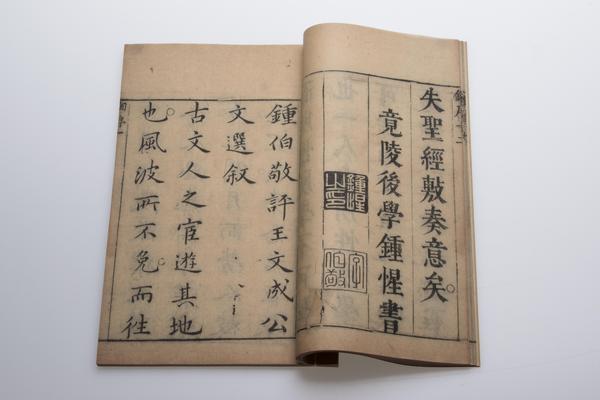 失聖經敷奏意矣。
竟陵後學鍾惺書
鍾惺之印
字伯敬
鍾伯敬評王文成公
文選叙
古文人之宦遊其地
也。風波所不免。而徃